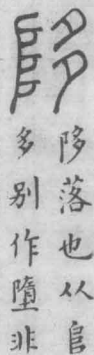 陊
陊落也从𨸏
多别作墮非